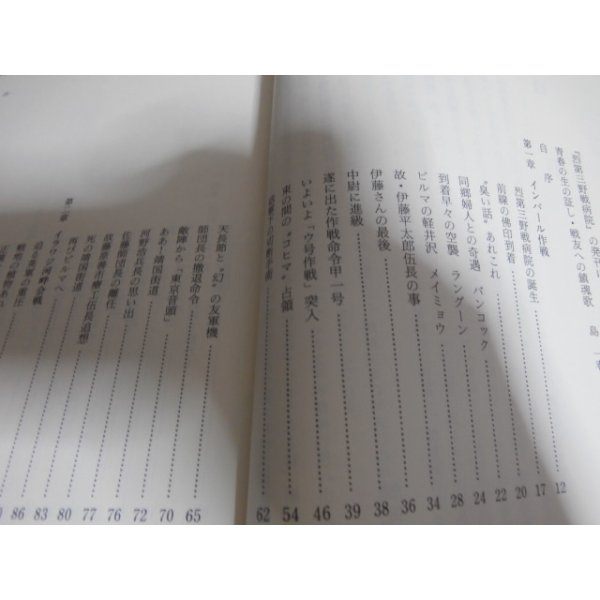 『烈第三野戦病院』の発行に
青春の生の証し・戦友への鎮魂歌 島
自序
第一章 インパール作戦
烈第三野戦病院の誕生 12
前線の佛印到着 17
〝臭い話〟あれこれ 20
同郷婦人との奇遇 バンコック 22
到着早々の空襲 ラングーン 24
ビルマの軽井沢、メイミョウ 28
故・伊藤平太郎伍長の事 34
伊藤さんの最後 36
中尉に進級 38
遂に出た作戦命令甲一号 39
いよいよ「ウ号作戦」突入 46
束の間の〝コヒマ〟占領 54
62
天長節と〝幻〟の友軍機 65
師団長の撤退命令 70
敵陣から「東京音頭」 72
ああ!靖国街道 76
の思い出 77
佐藤師団長の離任 80
伍長追想 83
死の靖国街道 86
再びビルマへ
第二章 イラワジ河畔会戦